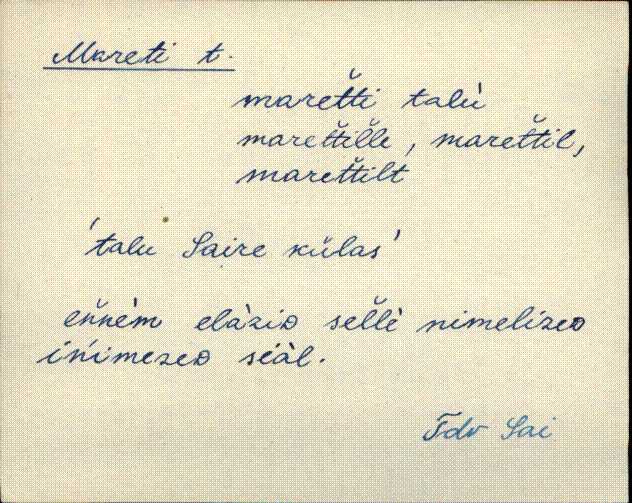 Mareti t.
mare͔t̆ti talù
maret̆til̆le, maret̆til,
maret̆tilt
'talu Saire külas'
en̆nèm elàzid sel̆lè nimelized
inimezed siàl.
Tdv Sai